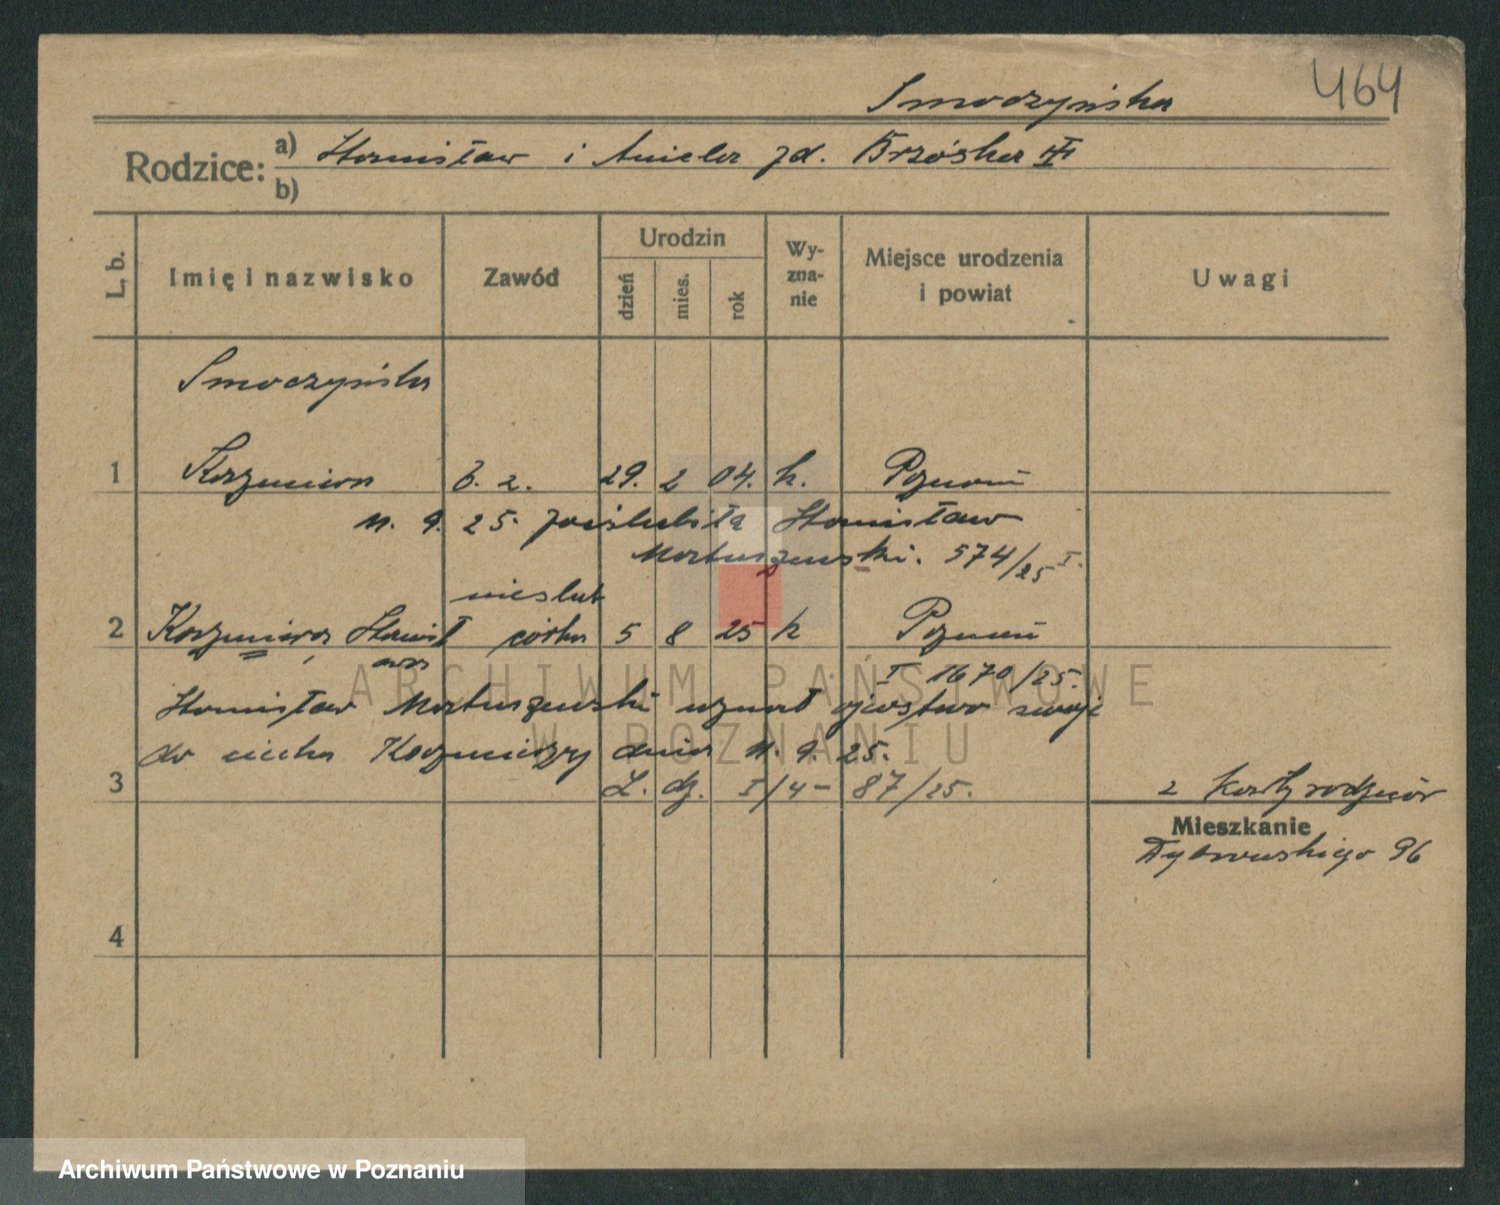 464
Smoczyńska
Rodzice: a) Stanisław i Aniela zd. Brzóska
b)
L. b.
Imię i nazwisko
Zawód
Urodzin
dzień
mies.
rok
Wy-
zna-
nie
Miejsce urodzenia
i powiat
Uwagi
Smoczyńska
1 Kazmiera b. z. 29. 2 04. k. Poznań
11. 9. 25. zaślubiła Stanisław
Matuszewski. 574/25 I.
nieślub
2 Kazmiera Stanisł córka 5 8 25 k Poznań
awa
I 1670/25.
Stanisław Matuszewski uznał ojcostwo swoje
do Kazmierzy dnia 11. 9. 25.
3 L. dz. I/4 - 87/25.
2 karty rodziców
Mieszkanie
96
4
ARCHIWUM PAŃSTWOWE
W POZNANIU
Archiwum Państwowe w Poznaniu